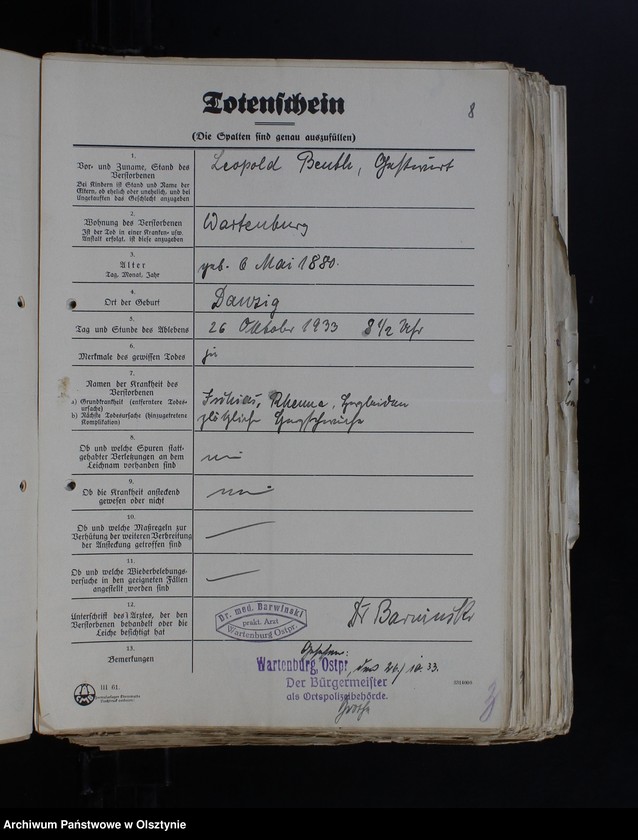 Totenschein
8
(Die Spalten sind genau auszufüllen)
1.
Vor- und Zuname, Stand des
Verstorbenen
Bei Kindern ist Stand und Name der
Eltern, ob ehelich oder unehelich, und bei
Ungetauften das Geschlecht anzugeben
Leopold Beuth, Gastwirt
2.
Wohnung des Verstorbenen
Ist der Tod in einer Kranken- usw.
Anstalt erfolgt, ist diese anzugeben
Wartenburg
3.
Alter
Tag, Monat, Jahr
geb. 6 Mai 1880.
4.
Ort der Geburt
Danzig
5.
Tag und Stunde des Ablebens
26 Oktober 1933 8 1/2 Uhr
6.
Merkmale des gewissen Todes
ja
7.
Namen der Krankheit des
Verstorbenen
a) Grundkrankheit (entferntere Todes-
ursache)
b) Nächste Todesursache (hinzugetretene
Komplikation)
Ischias, Rheuma, Herzleiden
plötzliche Herzschwäche
8.
Ob und welche Spuren statt-
gehabter Verletzungen an dem
Leichnam vorhanden sind
nein
9.
Ob die Krankheit ansteckend
gewesen oder nicht
nein
10.
Ob und welche Maßregeln zur
Verhütung der weiteren Verbreitung
der Ansteckung getroffen sind
11.
Ob und welche Wiederbelebungs-
versuche in den geeigneten Fällen
angestellt worden sind
12.
Unterschrift des Arztes, der den
Verstorbenen behandelt oder die
Leiche besichtigt hat
Dr. med. Barwinski
prakt. Arzt
Wartenburg Ostpr.
Dr Barwinski
13.
Bemerkungen
Gesehen:
Wartenburg, Ostpr., den 26/10.33.
Der Bürgermeister
als Ortspolizeibehörde.
III 61.
Archiwum Państwowe w Olsztynie